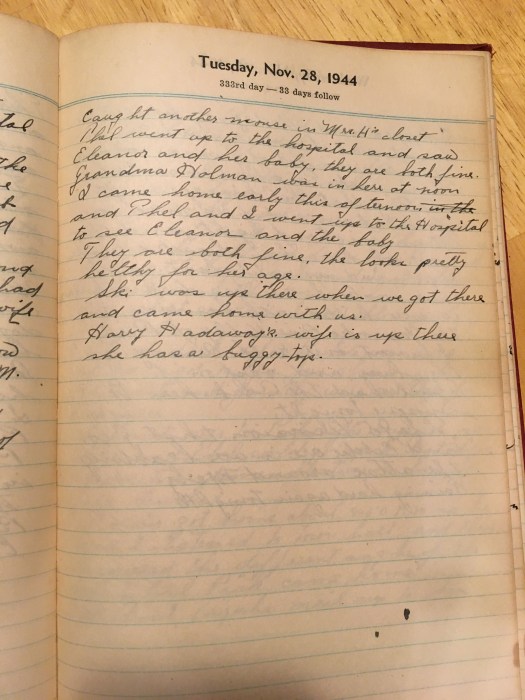 Tuesday, Nov. 28, 1944
333rd day — 33 days follow
Caught another mouse in "Mrs. H's closet"
Phel went up to the hospital and saw
Eleanor and her baby, they are both fine.
Grandma Holman was in here at noon
I came home early this afternoon in the
and Phel and I went up to the Hospital
to see Eleanor and the baby
They are both fine, the looks pretty
helthy for her age.
Ski was up there when we got there
and came home with us.
Harry Hadaway's wife is up there
she has a buggy-top.
tal
the
had
wife
M.
of